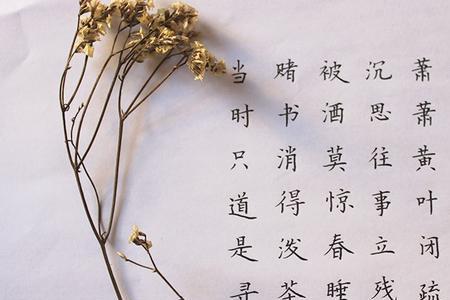 萧萧黄叶闭疏
沉思往事立残
被酒莫惊春睡
赌书消得泼茶
当时只道是寻